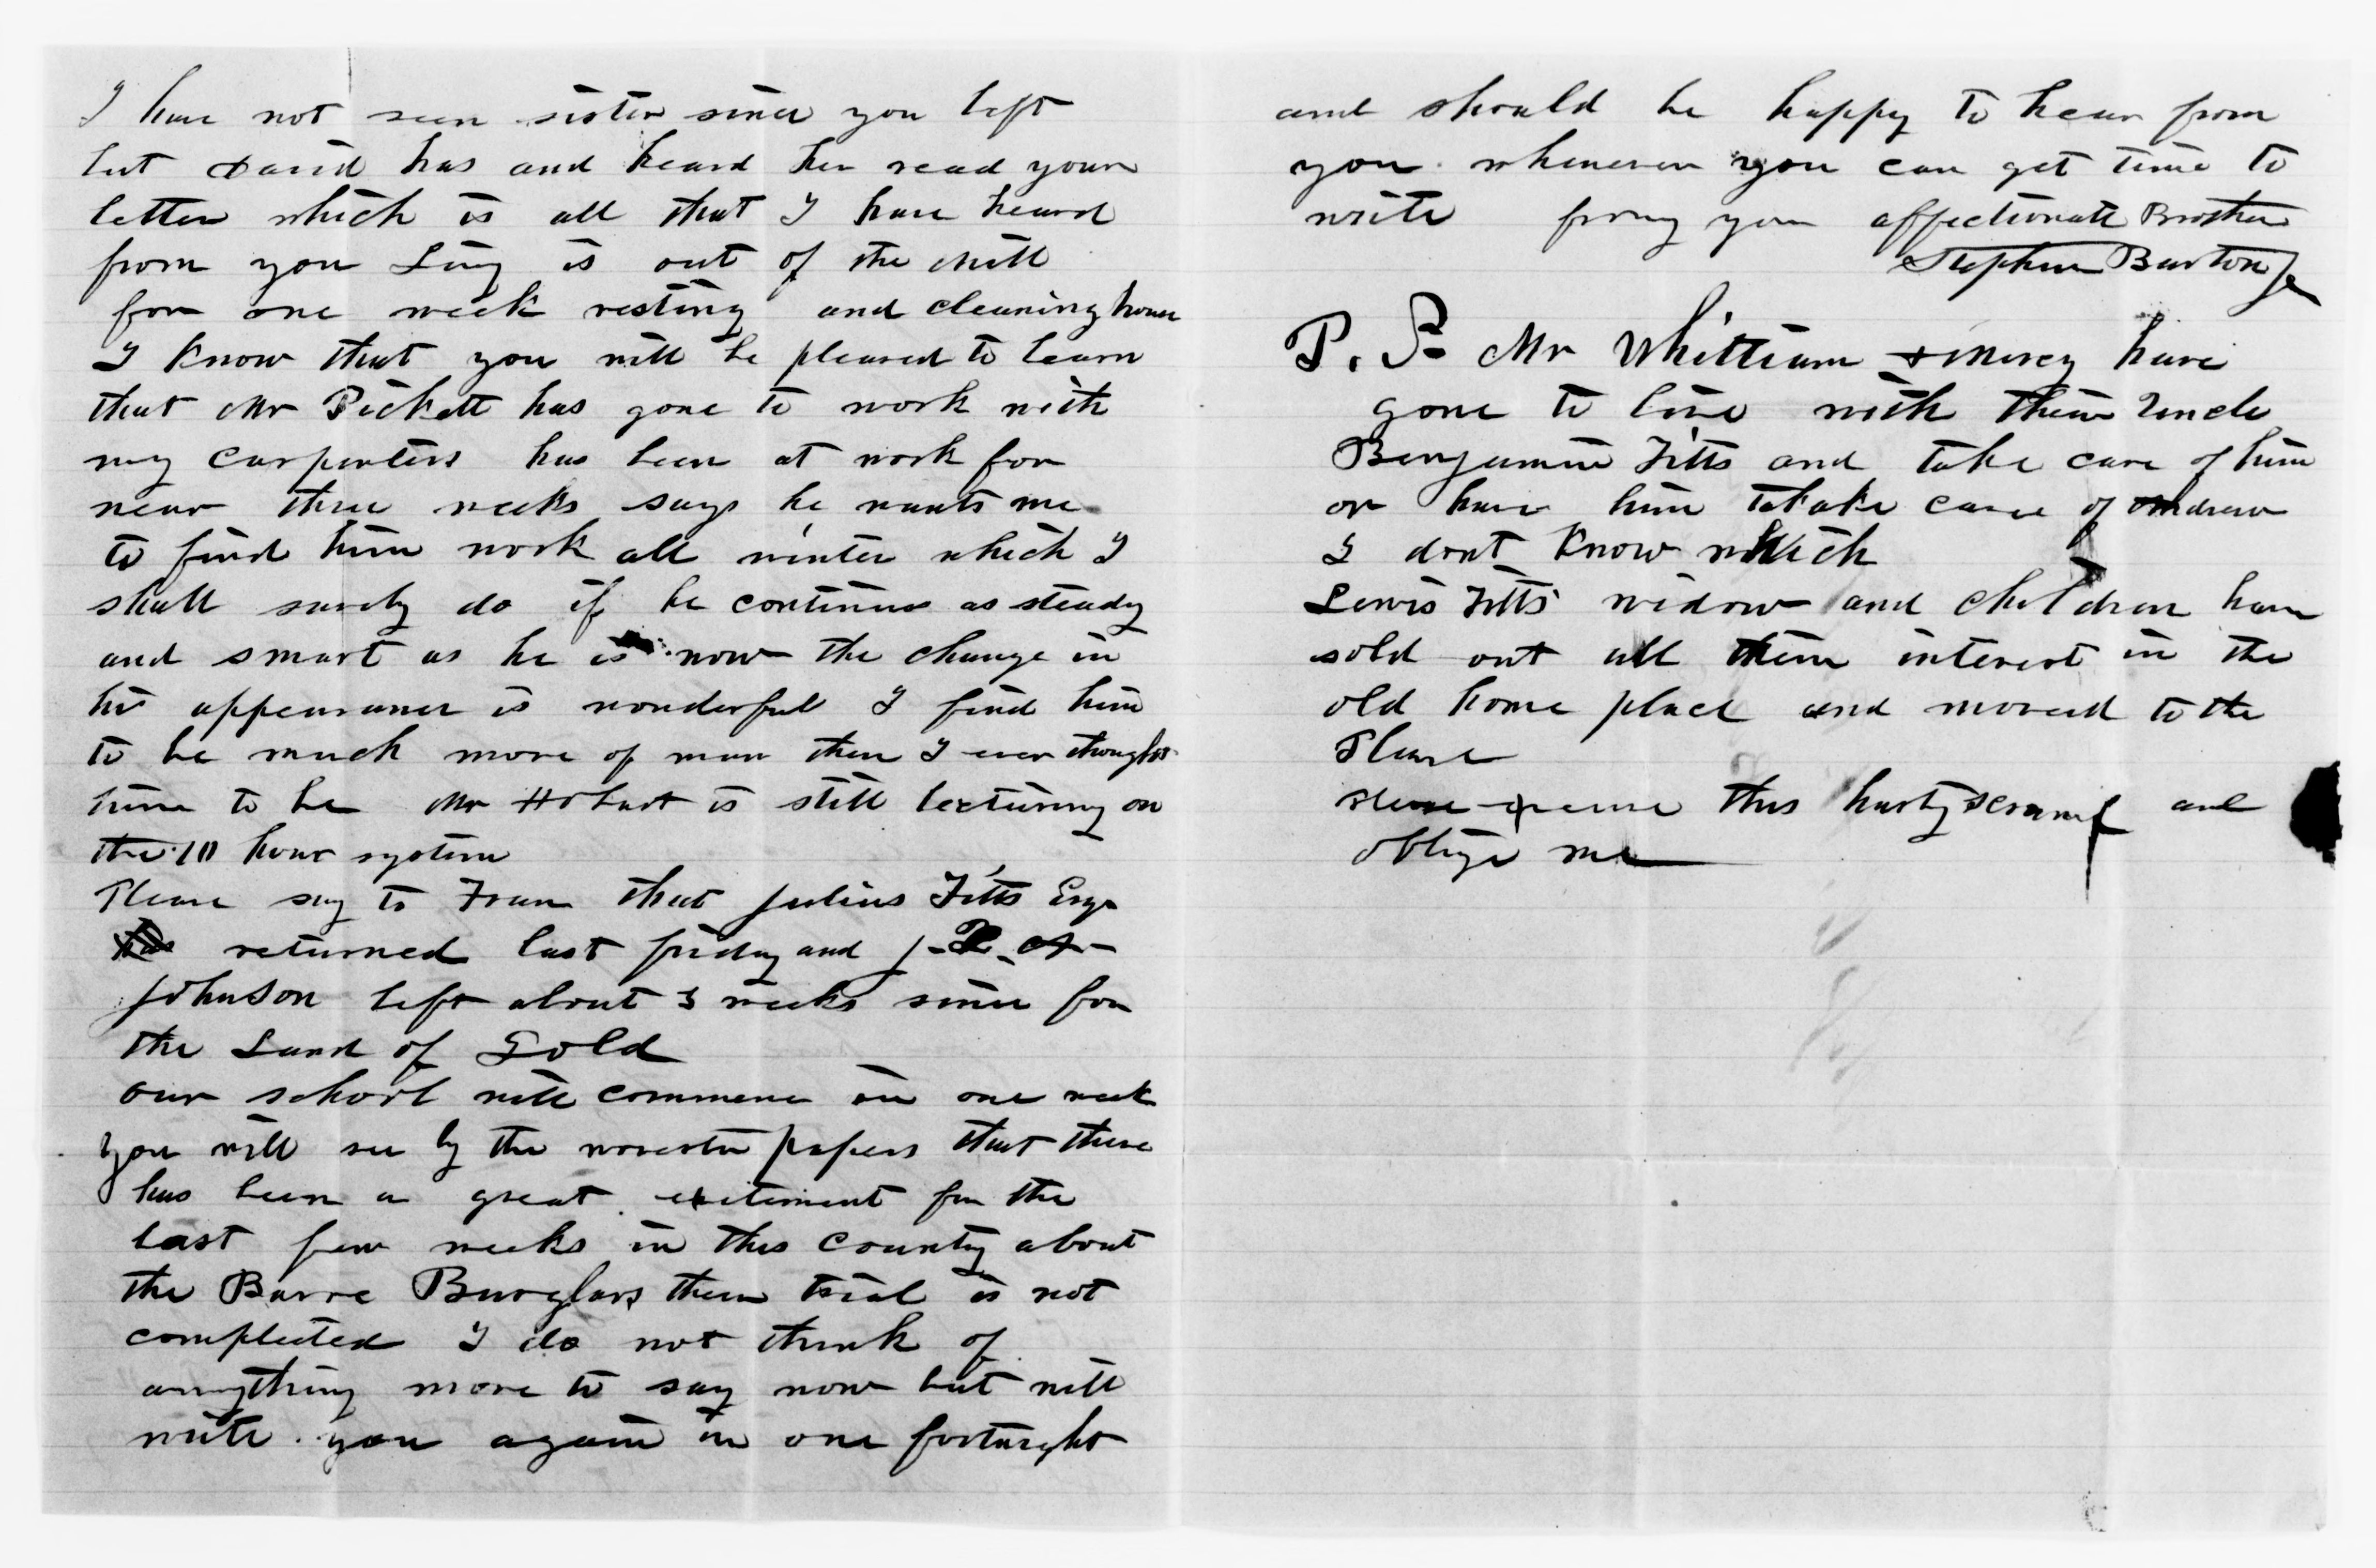 I have not seen sister since you left
but David has and heard her read your
letter which is all that I have heard
from you Liny is out of the Mill
for one week resting and cleaning house
I know that you will be pleased to learn
that Mr Pickett has gone to work with
my carpenters has been at work for
near three weeks says he wants me
to find him work all winter which I
shall surely do if he continues as steady
and smart as he is now the change in
his appearance is wonderful I find him
to be much more of man then I ever thought
him to be Mr Hobart is still lecturing on
the 10 hour system
Please say to Fran that Julius Fitts Esqr
has returned last friday and J. A.
Johnson left about 3 weeks since for
the Land of Gold
our school will commence in one week
you will see by the worester papers that there
has been a great exitement for the
last few weeks in this county about
the Barre Burglars their trial is not
completed I do not think of
annything more to say now but will
write you again in one fortnight
and should be happy to hear from
you whenever you can get time to
write from you affectionate Brother
Stephen Barton Jr
P. S. Mr Whittiam & Mercy have
gone to live with their Uncle
Benjamin Fitts and take care of him
or have him totake care of Andrew
I dont know which
Lewis Fitts widow and children have
sold out all their interest in the
old home place and moved to the
Plane
please excuse this hasty scrawl and
oblige me